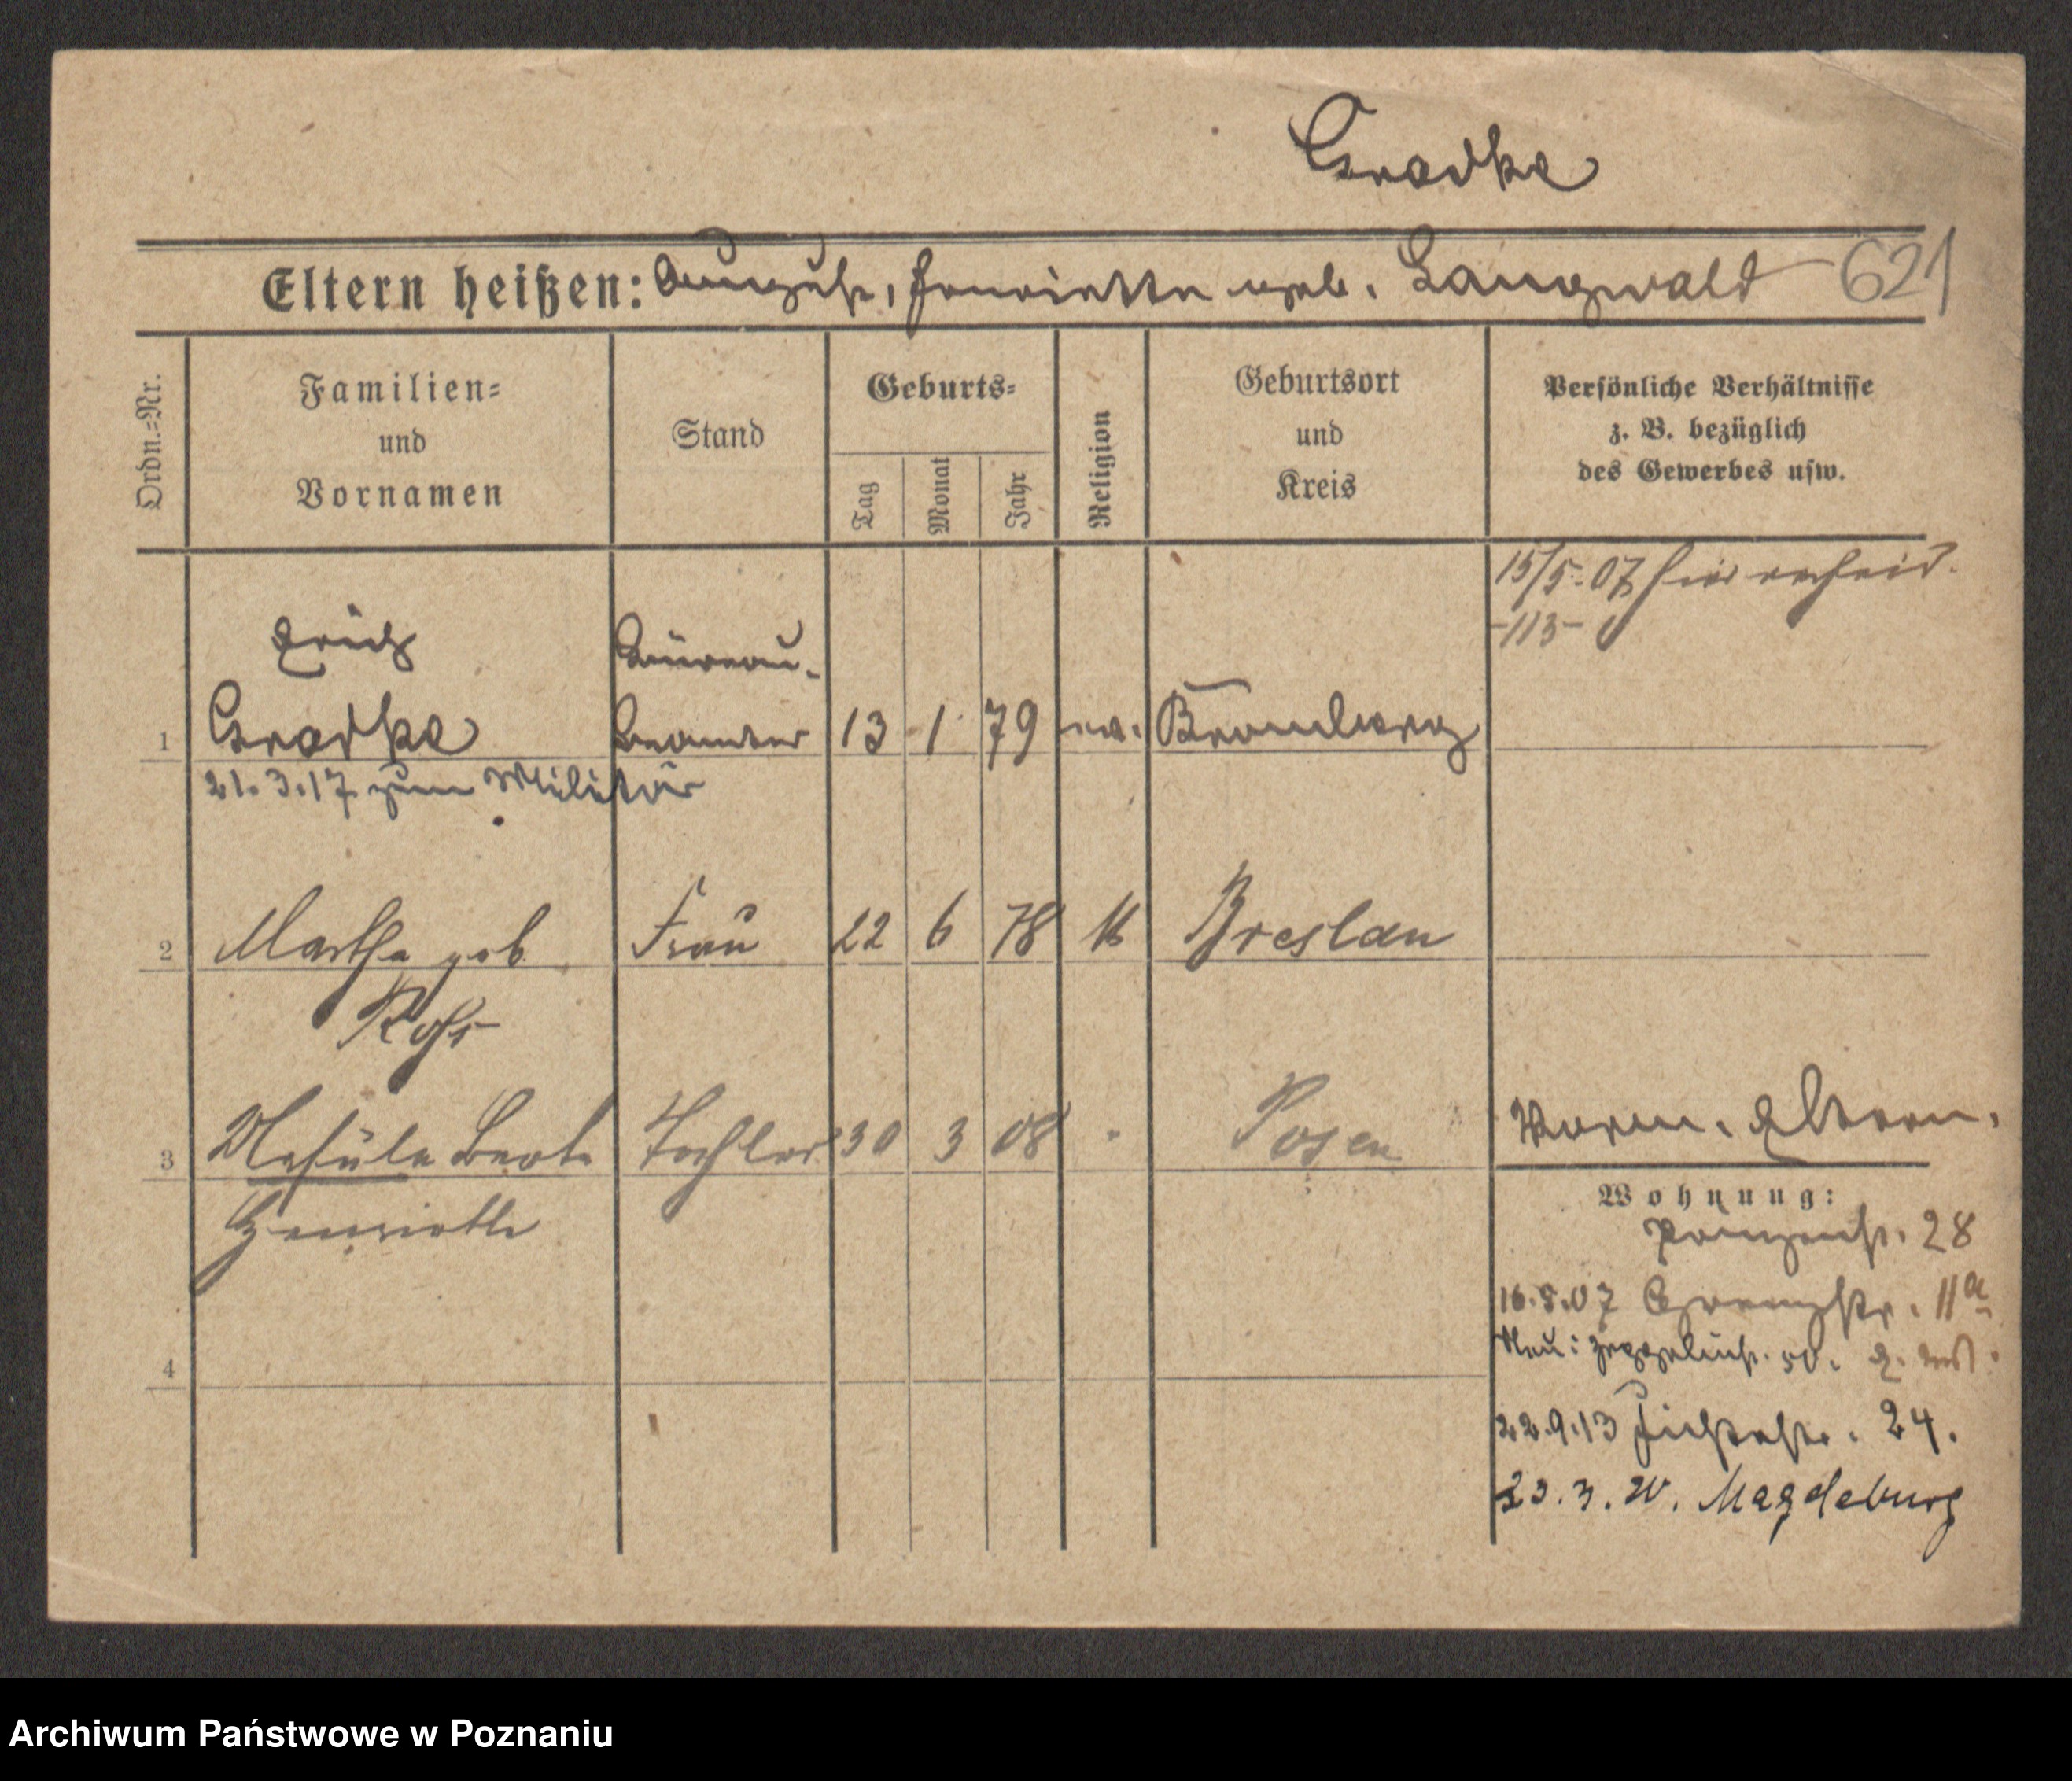 Gradke
Eltern heißen: August, Henriette geb. Langwald 621
Ordn.=Nr.
Familien=
und
Vornamen
Stand
Geburts=
Tag
Monat
Jahr
Religion
Geburtsort
und
Kreis
Persönliche Verhältnisse
z. B. bezüglich
des Gewerbes usw.
15/5. 07 hier
-113-
1 Erich
Gradke
Büreau-
beamter 13 1 79 ev. Bromberg
21.3.17 zum Militär
2 Martha geb. Frau 22 6 78 Breslau
3 Berta Tochter 30 3 08 Posen
Henriette
4
Eltern.
Wohnung:
Prinzenstr. 28
16.5.07 Grenzstr. 11a
Neu: Zeppelinstr. 50.
22.9.13 Fichtestr. 24.
23.3.20. Magdeburg
Archiwum Państwowe w Poznaniu